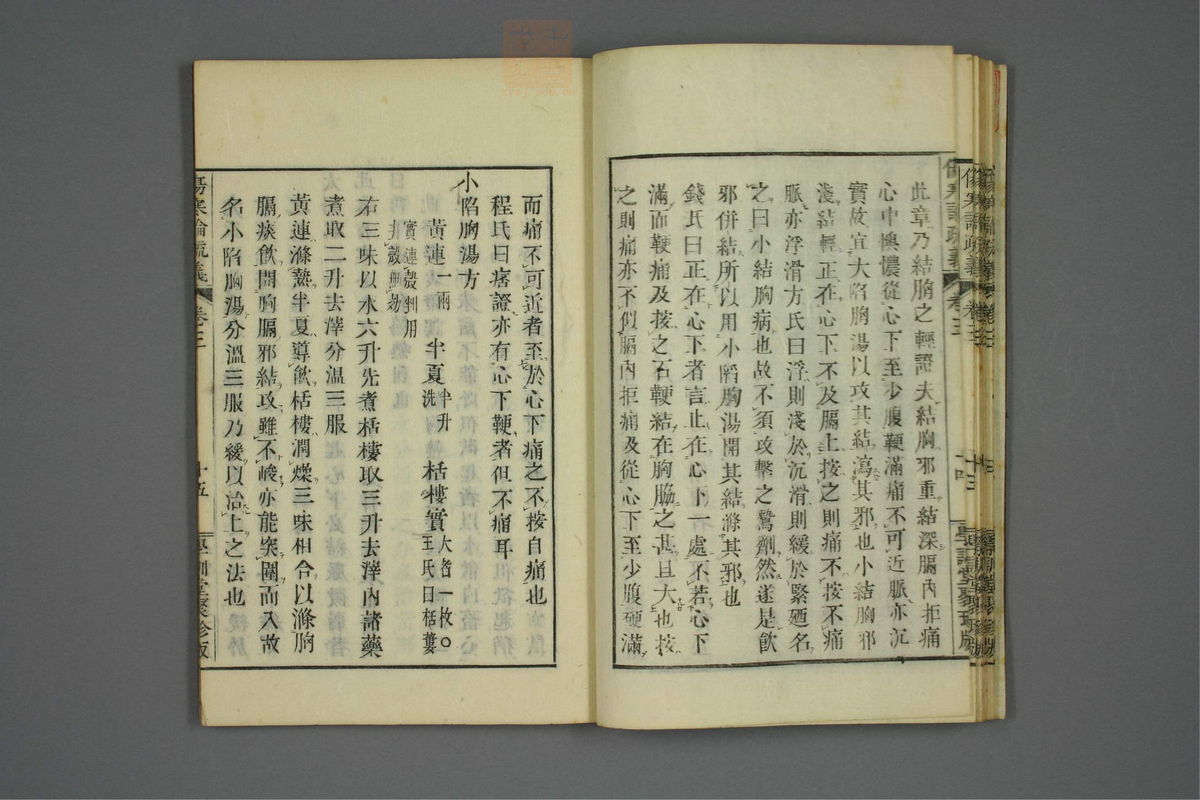 此章乃結胸之輕證夫結胸邪重結深膈內拒痛
心中懊憹從心下至少腹鞕滿痛不可近脈亦沉
實故宜大陷胸湯以攻其結瀉其邪也小結胸邪
淺結輕正在心下不及膈上按之則痛不按不痛
脈亦浮滑方氏曰浮則淺於沉滑則緩於緊廼名
之曰小結胸病也故不須攻擊之驇劑然遂是飲
邪併結所以用小陷胸湯開其結滌其邪也
錢氏曰正在心下者言止在心下一處不若心下
滿而鞕痛及按之石鞕結在胸脇之甚且大也按
之則痛亦不似膈內拒痛及從心下至少腹硬滿
而痛不可近者至於心下痛之不按自痛也
程氏曰痞證亦有心下鞕者但不痛耳
小陷胸湯方
黃連一兩 半夏半升洗 栝樓實大者一枚〇王氏曰栝蔞
實連殼剉用
去三味以水六升先煮栝樓取三升去滓內諸藥
煮取二升去滓分溫三服
黃連滌熱半夏導飲栝樓潤燥三味相合以滌胸
膈痰飲開胸膈邪結攻雖不峻亦能突圍而入故
名小陷胸湯分溫三服乃緩以治上之法也
傷寒論疏義
卷三
十五